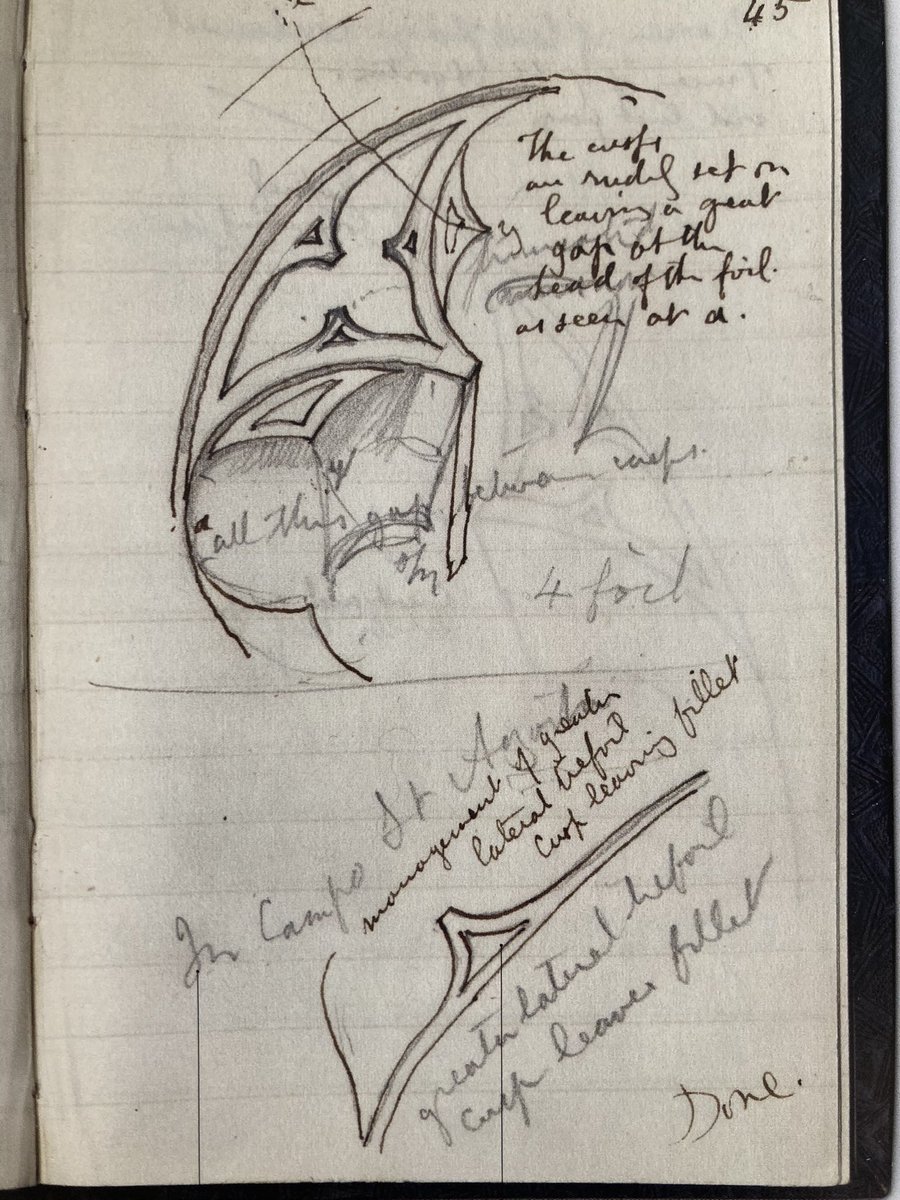 45
The cusps
are rudely set on
leaving a great
gap at the
head of the foil.
as seen at a.
y
a
all this gap between cusps.
4 foil
In Campo St
management of greater
lateral trefoil
cusp leaving fillet
greater lateral trefoil
cusp leaves fillet
Done.